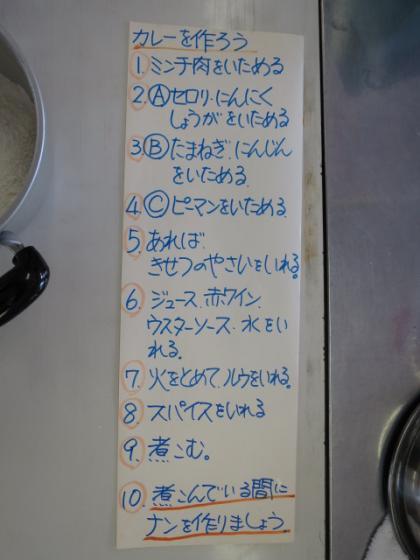 カレーを作ろう
1. ミンチ肉をいためる
2. Ⓐセロリ、にんにく
しょうがをいためる
3. Ⓑたまねぎ、にんじん
をいためる
4. Ⓒピーマンをいためる
5. あれば
きせつのやさいをいれる。
6. ジュース、赤ワイン、
ウスターソース、水をい
れる。
7. 火をとめて、ルウをいれる。
8. スパイスをいれる
9. 煮こむ。
10. 煮こんでいる間に
ナンを作りましょう